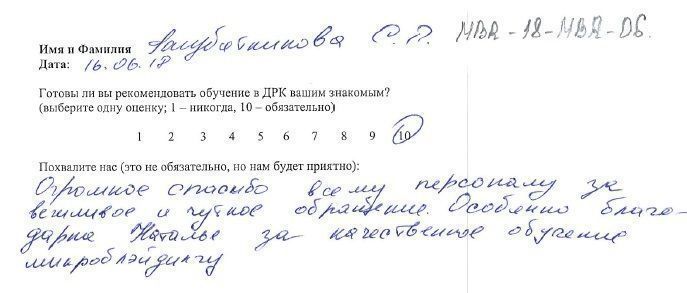 Имя и Фамилия С.П. MBA-18-MBA-06.
Дата: 16.06.18
Готовы ли вы рекомендовать обучение в ДРК вашим знакомым?
(выберите одну оценку; 1 – никогда, 10 – обязательно)
1 2 3 4 5 6 7 8 9 10
Похвалите нас (это не обязательно, но нам будет приятно):
Огромное спасибо всему персоналу за
вежливое и чуткое обращение. Особенно благо-
дарна Наталье за качественное обучение
микроблэйдингу